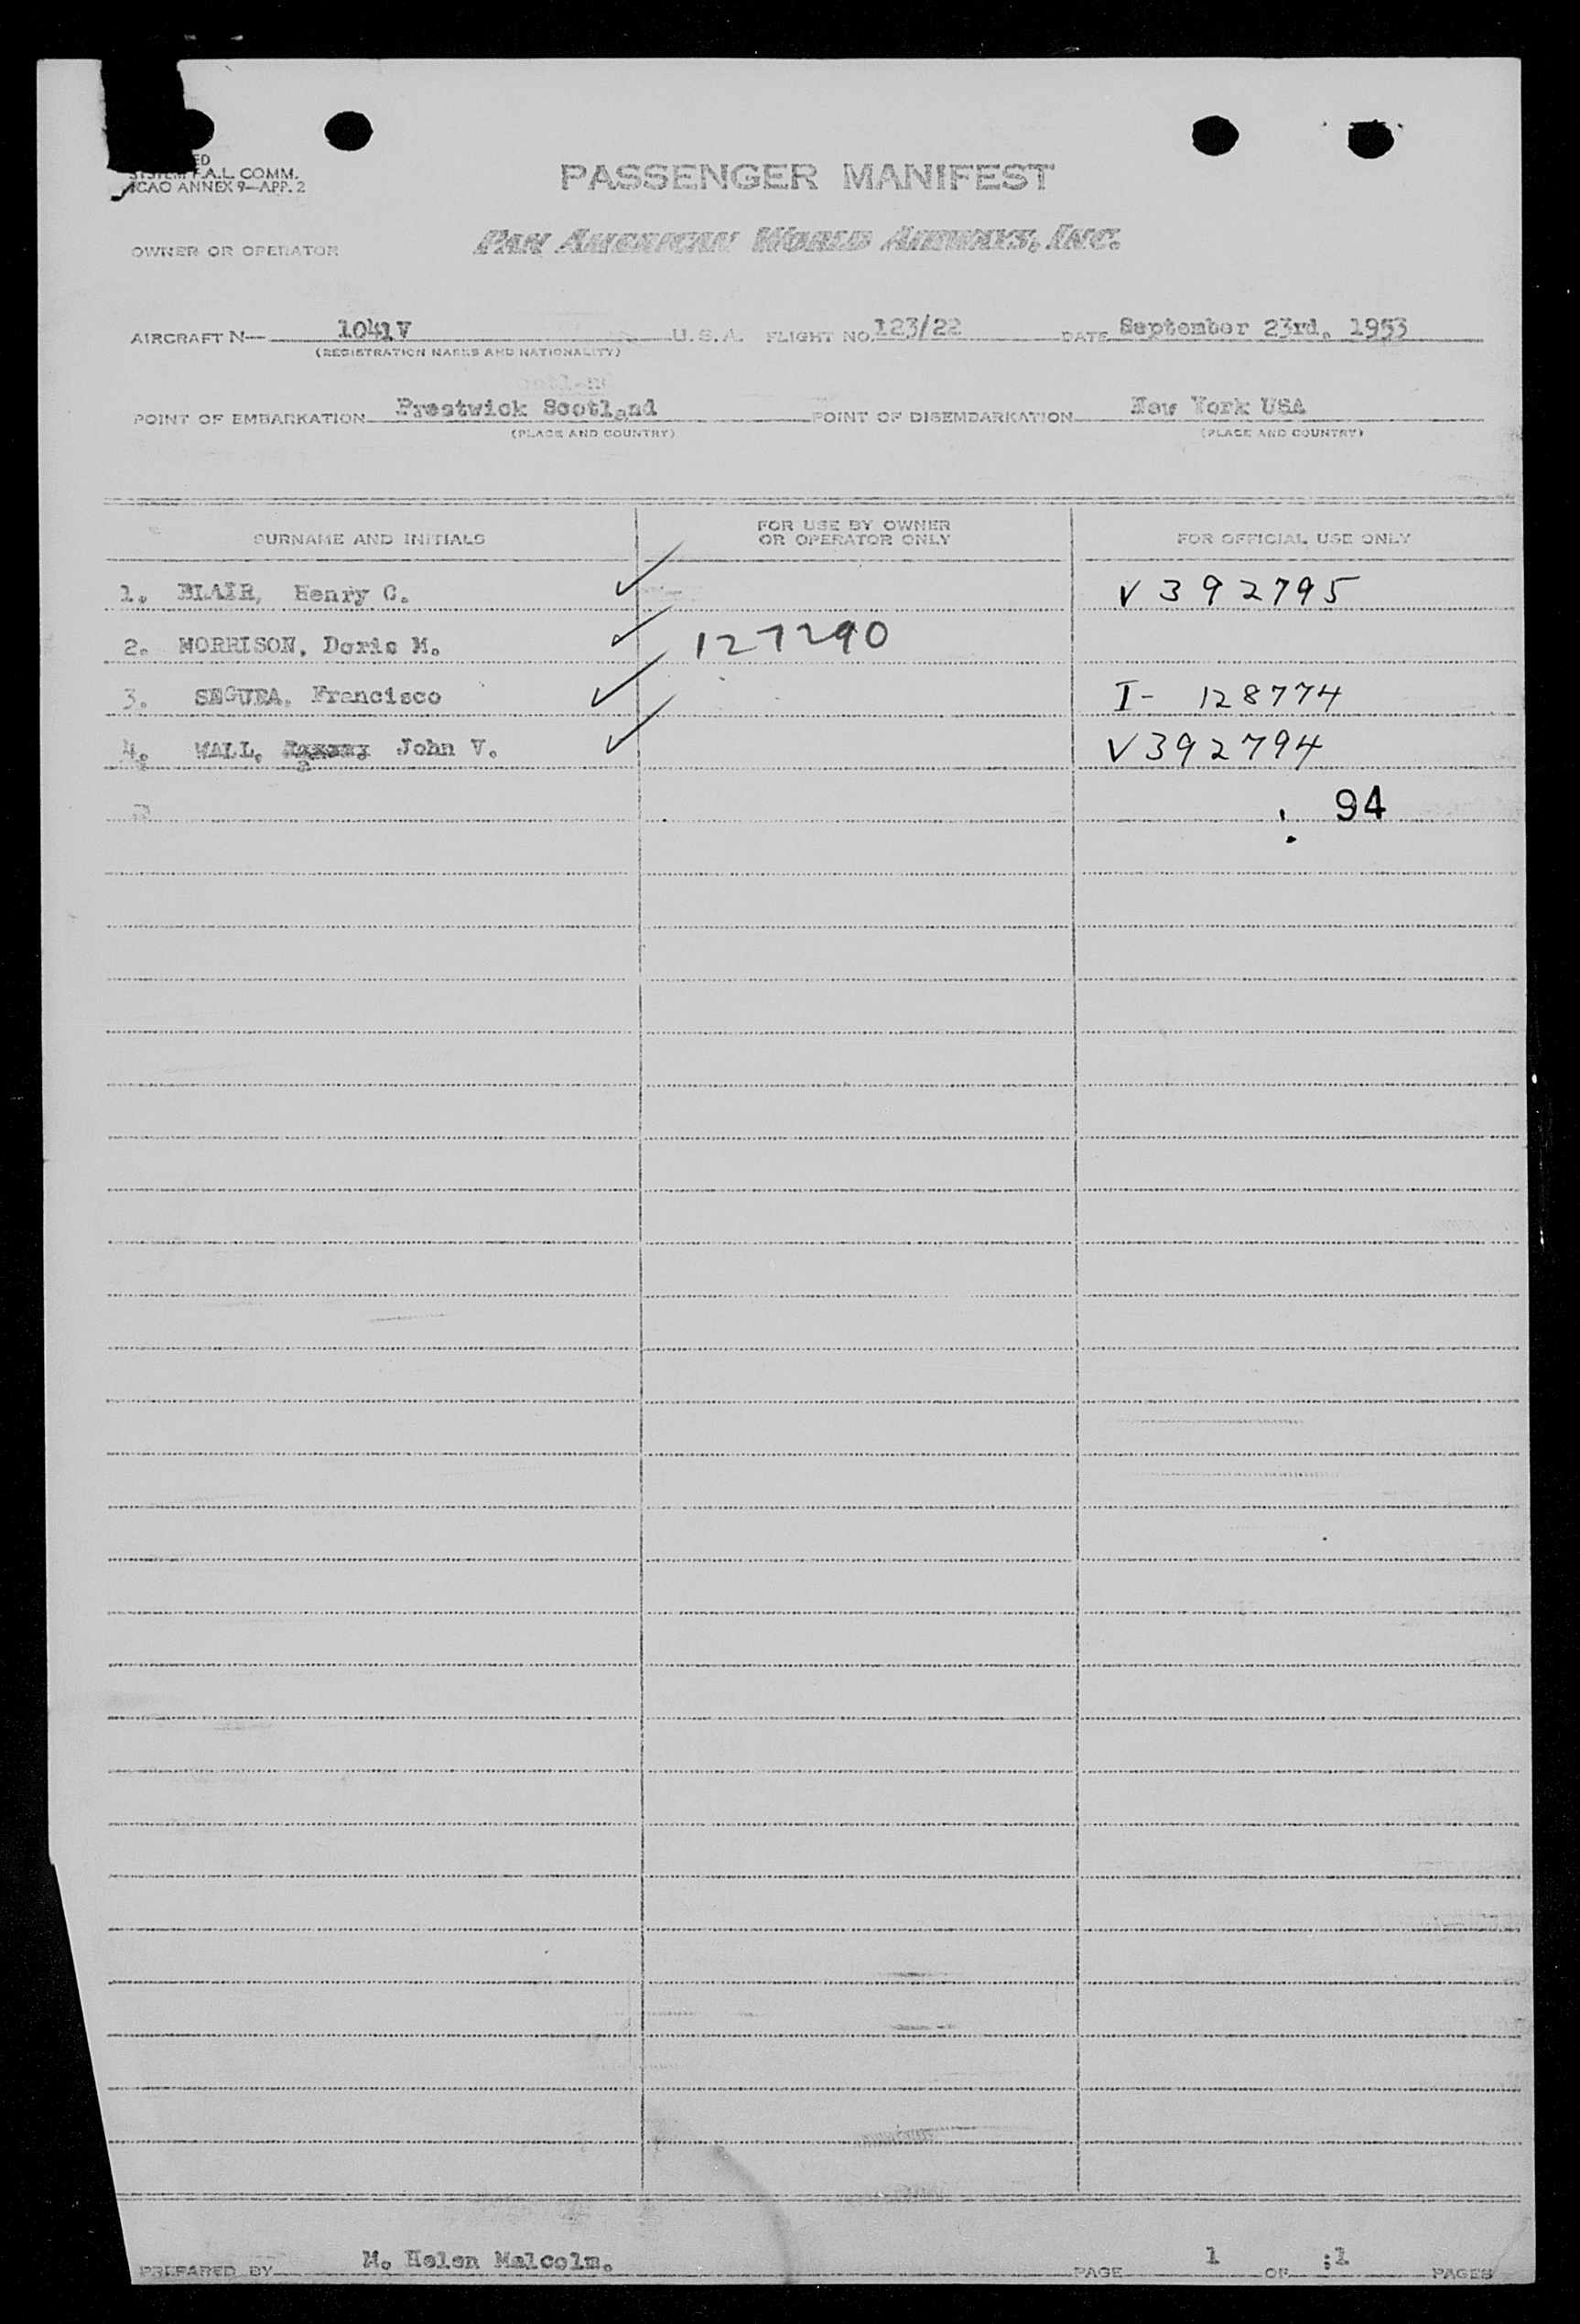 SYSTEM F.A.L. COMM.
ICAO ANNEX 9—APP. 2
PASSENGER MANIFEST
OWNER OR OPERATOR PAN AMERICAN WORLD AIRWAYS, INC.
AIRCRAFT N— 1041V U. S. A. FLIGHT NO. 123/22 DATE September 23rd. 1953
(REGISTRATION MARKS AND NATIONALITY)
POINT OF EMBARKATION Prestwick Scotland POINT OF DISEMBARKATION New York USA
(PLACE AND COUNTRY) (PLACE AND COUNTRY)
SURNAME AND INITIALS FOR USE BY OWNER OR OPERATOR ONLY FOR OFFICIAL USE ONLY
1. BLAIR, Henry C. ✓ V 392795
2. MORRISON, Doris M. ✓ 127290
3. SEGURA, Francisco ✓ I- 128774
4. WALL, John V. ✓ V392794
94
PREPARED BY M. Helen Malcolm. PAGE 1 OF :1 PAGES